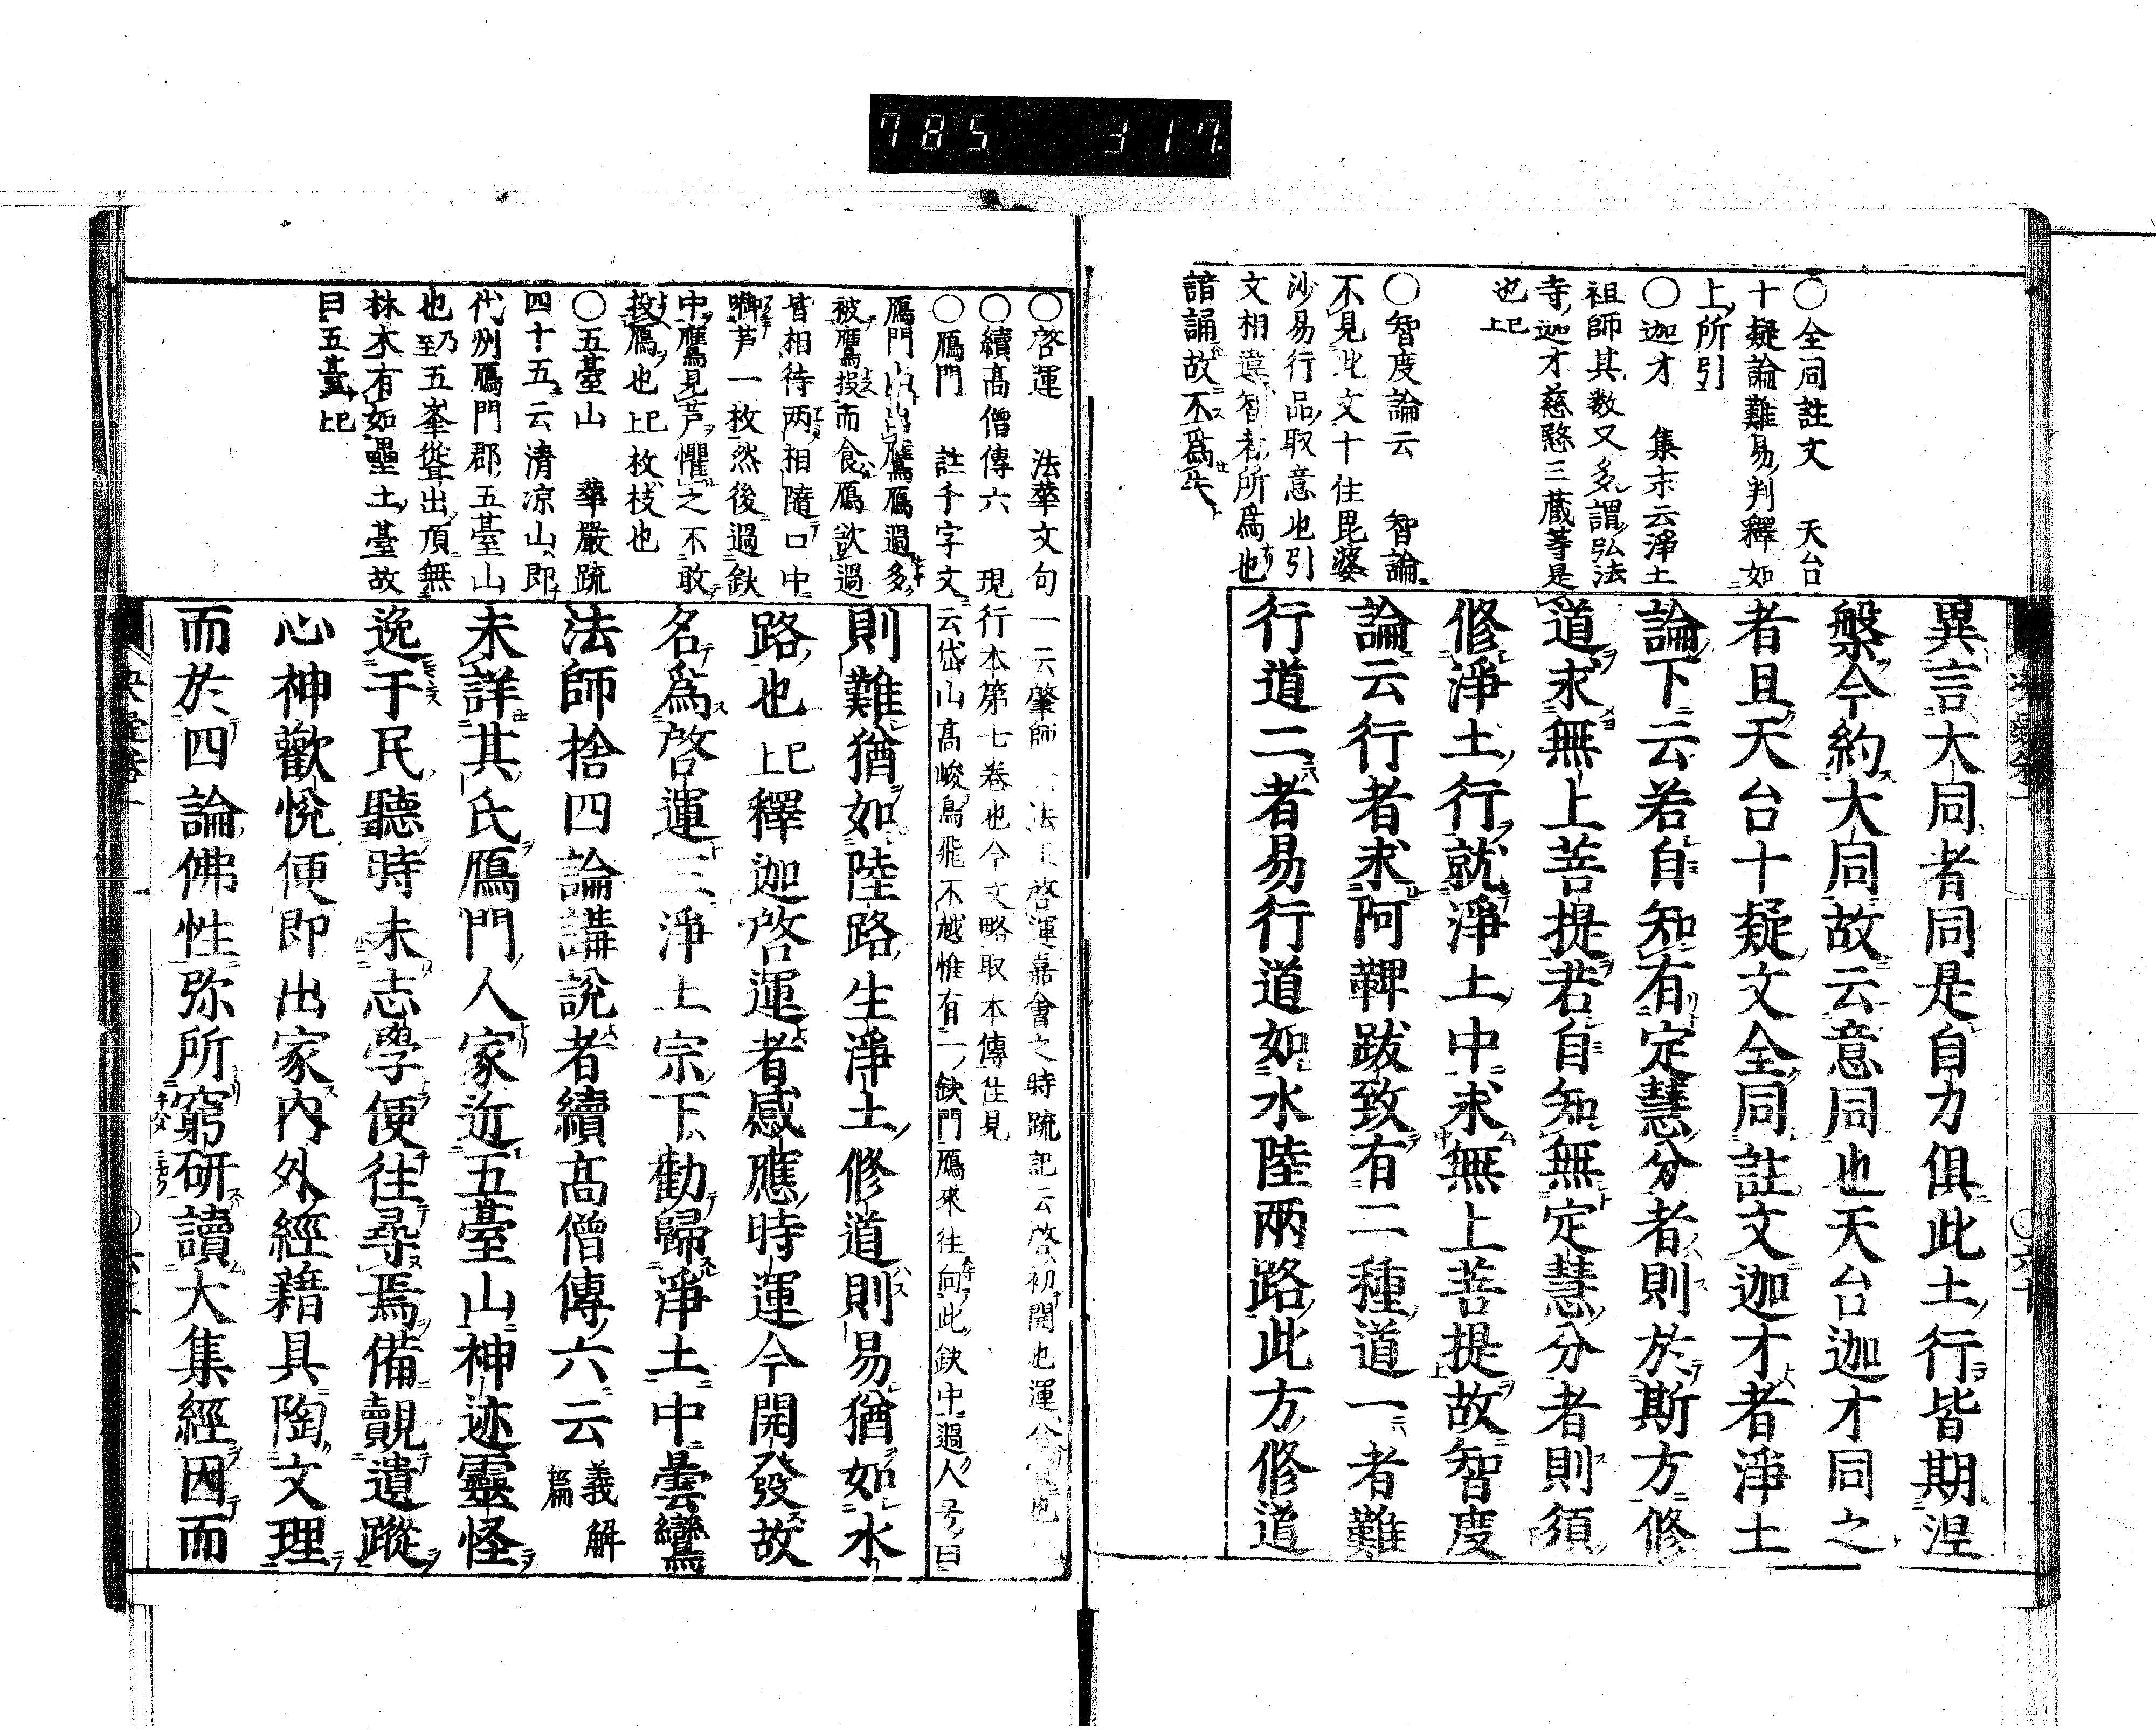 785 317.
○全同註文 天台
十疑論難易判釋如
上所引
○迦才 集末云淨土
祖師其数又多謂弘法
寺迦才慈愍三藏等是
也已上
○智度論云 智論
不見此文十住毘婆
沙易行品取意也引
文相違智者所爲也
諳誦故不爲失
異言大同者同是自力俱此土行皆期涅
槃今約大同故云意同也天台迦才同之
者且天台十疑文全同註文迦才者淨土
論下云若自知有定慧分者則於斯方修
道求無上菩提若自知無定慧分者則須
修淨土行就淨土中求無上菩提故智度
論云行者求阿鞞跋致有二種道一者難
行道二者易行道如水陸兩路此方修道
○啓運 法華文句一云肇師 法 啓運嘉會之時疏記云啓初開也運 也
○續高僧傳六 現行本第七卷也今文略取本傳徃見
○鴈門 註千字文云岱山高峻鳥飛不越惟有一缺門鴈來往向此缺中過人号曰
鴈門山出鷹鴈過多
被鷹投而食鴈欲過
皆相待两相隨口中
啣芦一枚然後過缺
中鷹見芦懼之不敢
投鴈也已上枚枝也
○五臺山 華嚴疏
四十五云清凉山即
代州鴈門郡五臺山
也乃至五峯聳出頂無
林木有如壘土臺故
曰五臺已上
則難猶如陸路生淨土修道則易猶如水
路也已上釋迦啓運者感應時運今開發故
名爲啓運三淨土宗下勸歸淨土中曇鸞
法師捨四論講說者續高僧傳六云義解篇
未詳其氏鴈門人家近五臺山神迹靈怪
逸于民聽時未志學便往尋焉備覿遺蹤
心神歡悅便即出家內外經籍具陶文理
而於四論佛性弥所窮研讀大集經因而